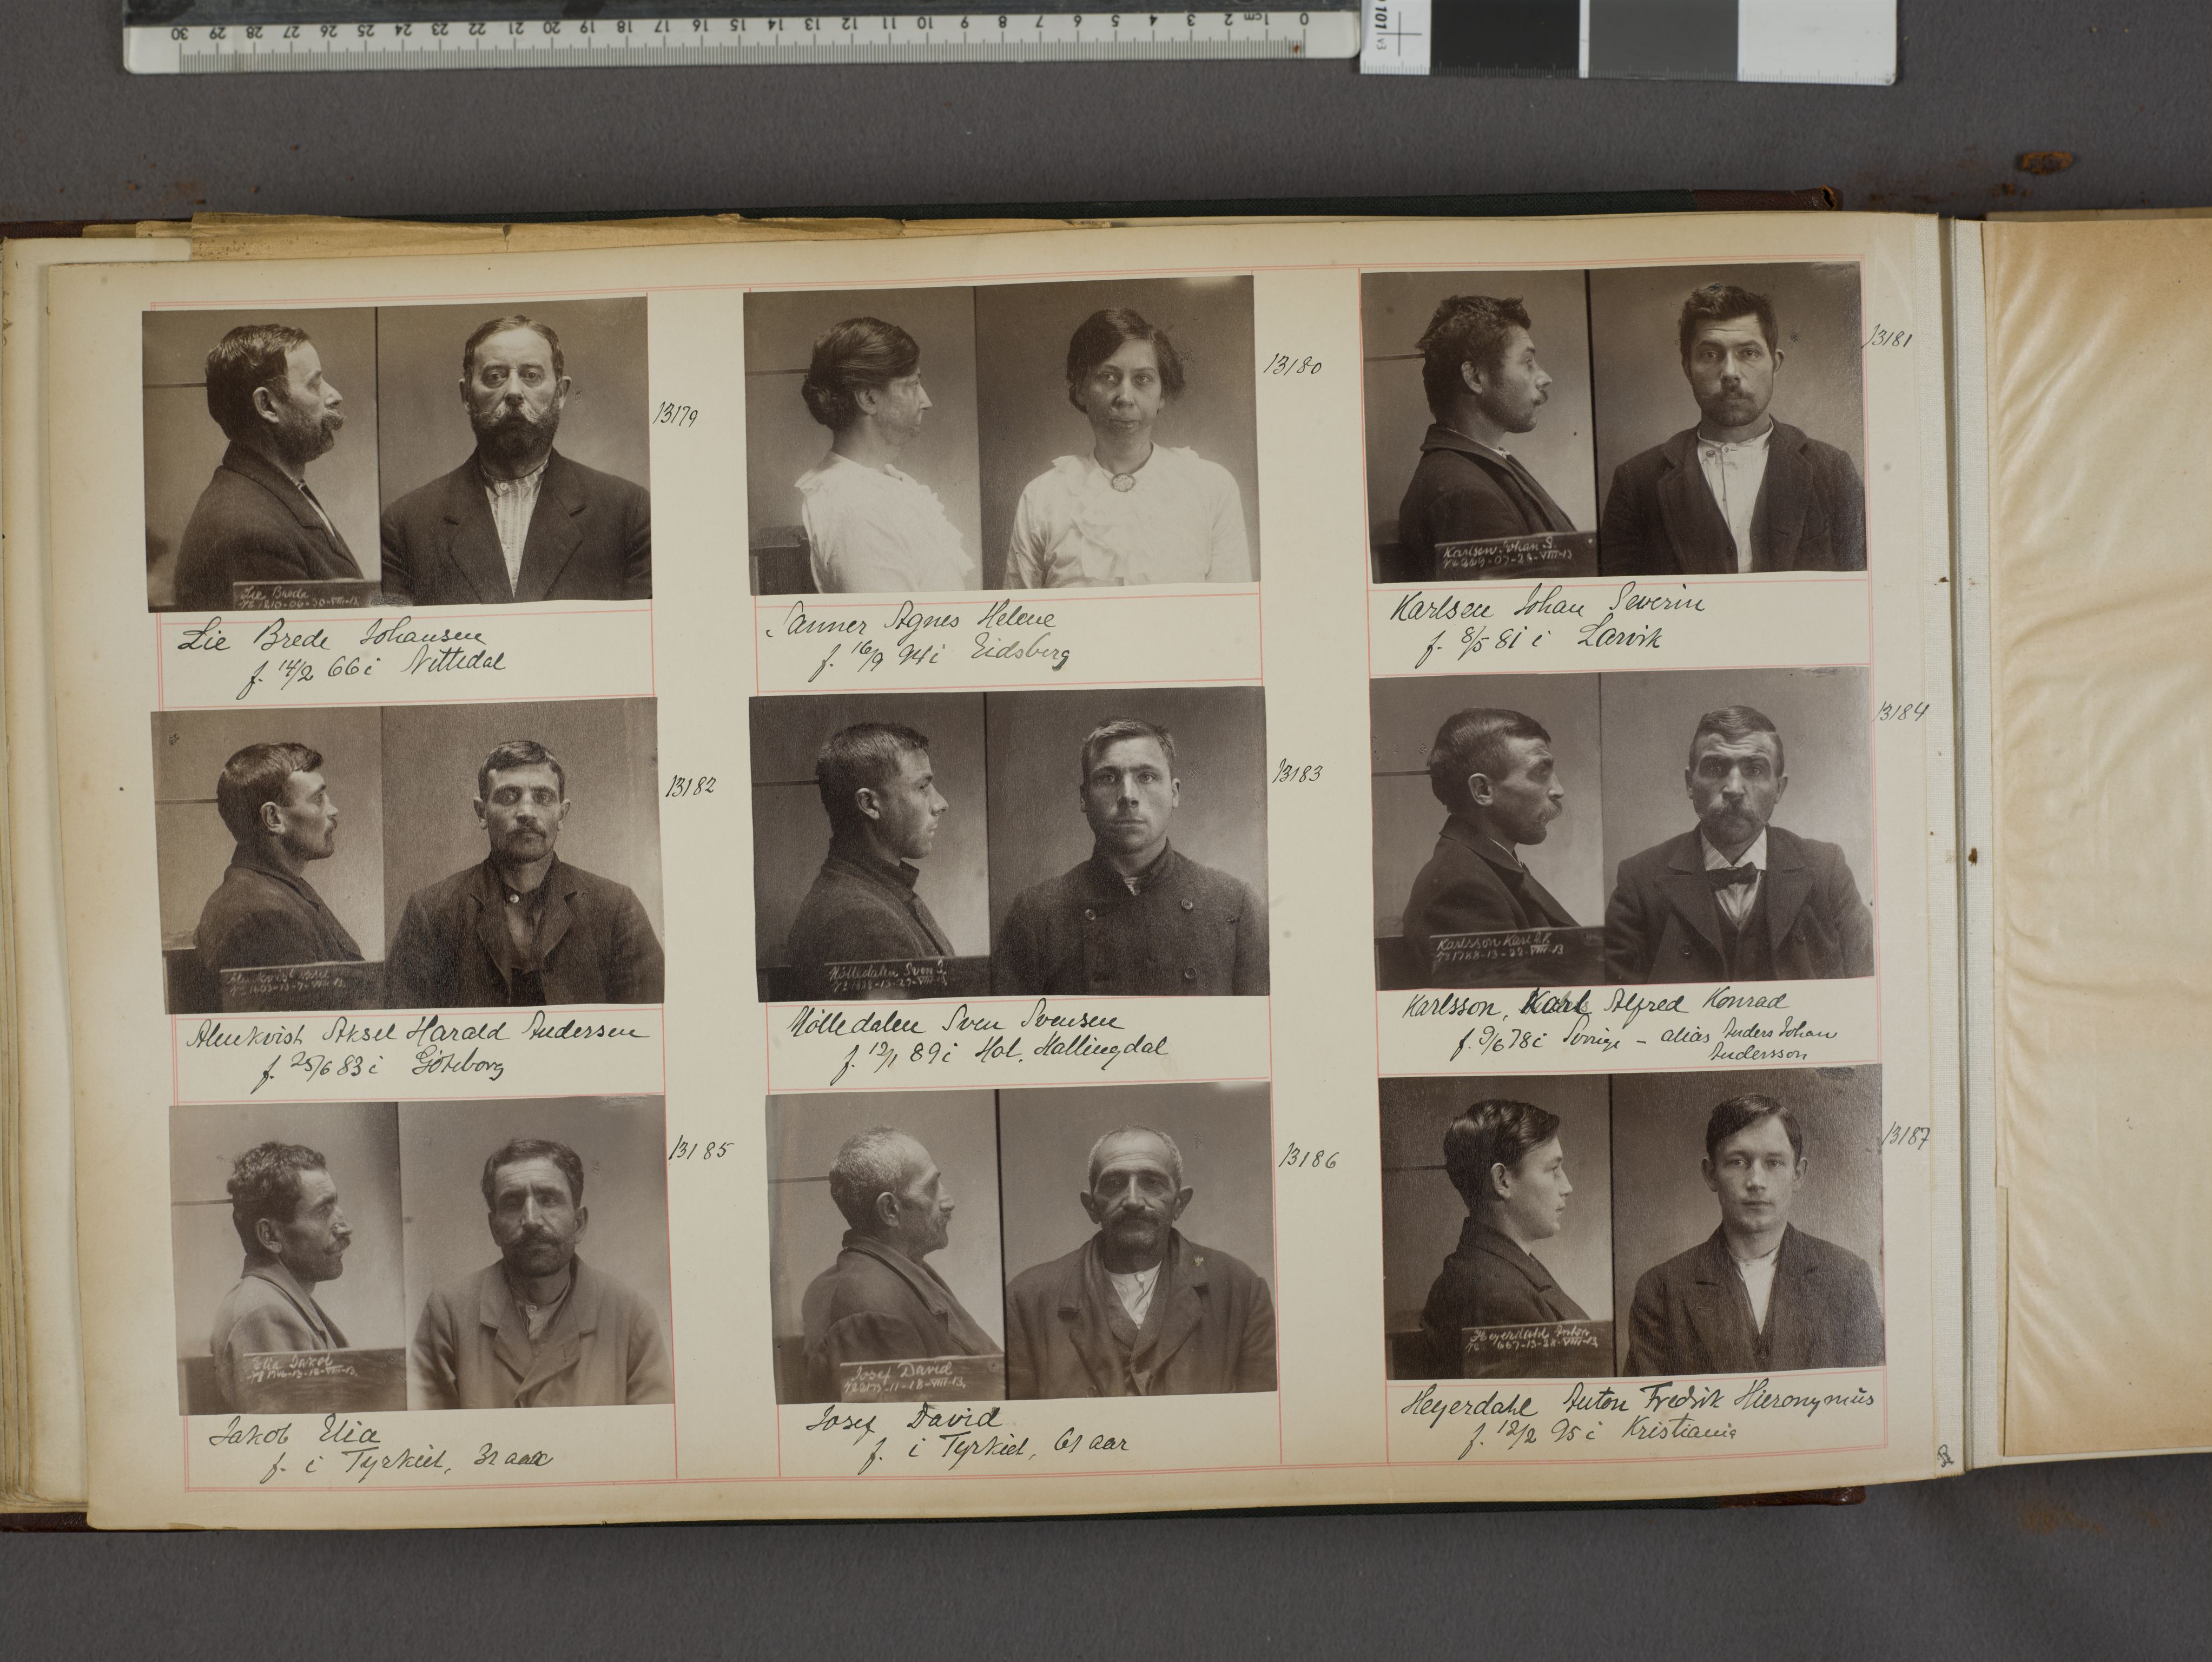 0 1cm 2 3 4 5 6 7 8 9 10 11 12 13 14 15 16 17 18 19 20 21 22 23 24 25 26 27 28 29 30
101 v3
13179
Lie Brede
Lie Brede Johansen
f. 14/2 66 i Nittedal
13180
Sanner Agnes Helene
f. 16/9 94 i Eidsberg
13181
Karlsen Johan S.
Karlsen Johan Severin
f. 8/5 81 i Larvik
13182
Almkvist Aksel Harald Andersen
f. 25/6 83 i Göteborg
13183
Mölledalen Sven S.
Mölledalen Sven Svensen
f. 12/1 89 i Hol, Hallingdal
13184
Karlsson Karl A.K.
No 1788-13-22-VIII-13
Karlsson, Karl Alfred Konrad
f. 9/6 78 i Sverige - alias Anders Johan
Andersson
13185
Elia Jakob
Jakob Elia
f. i Tyrkiet, 31 aar
13186
Josef David
Josef David
f. i Tyrkiet, 61 aar
13187
Heyerdahl Anton
Heyerdahl Anton Fredrik Hieronymus
f. 12/2 95 i Kristiania